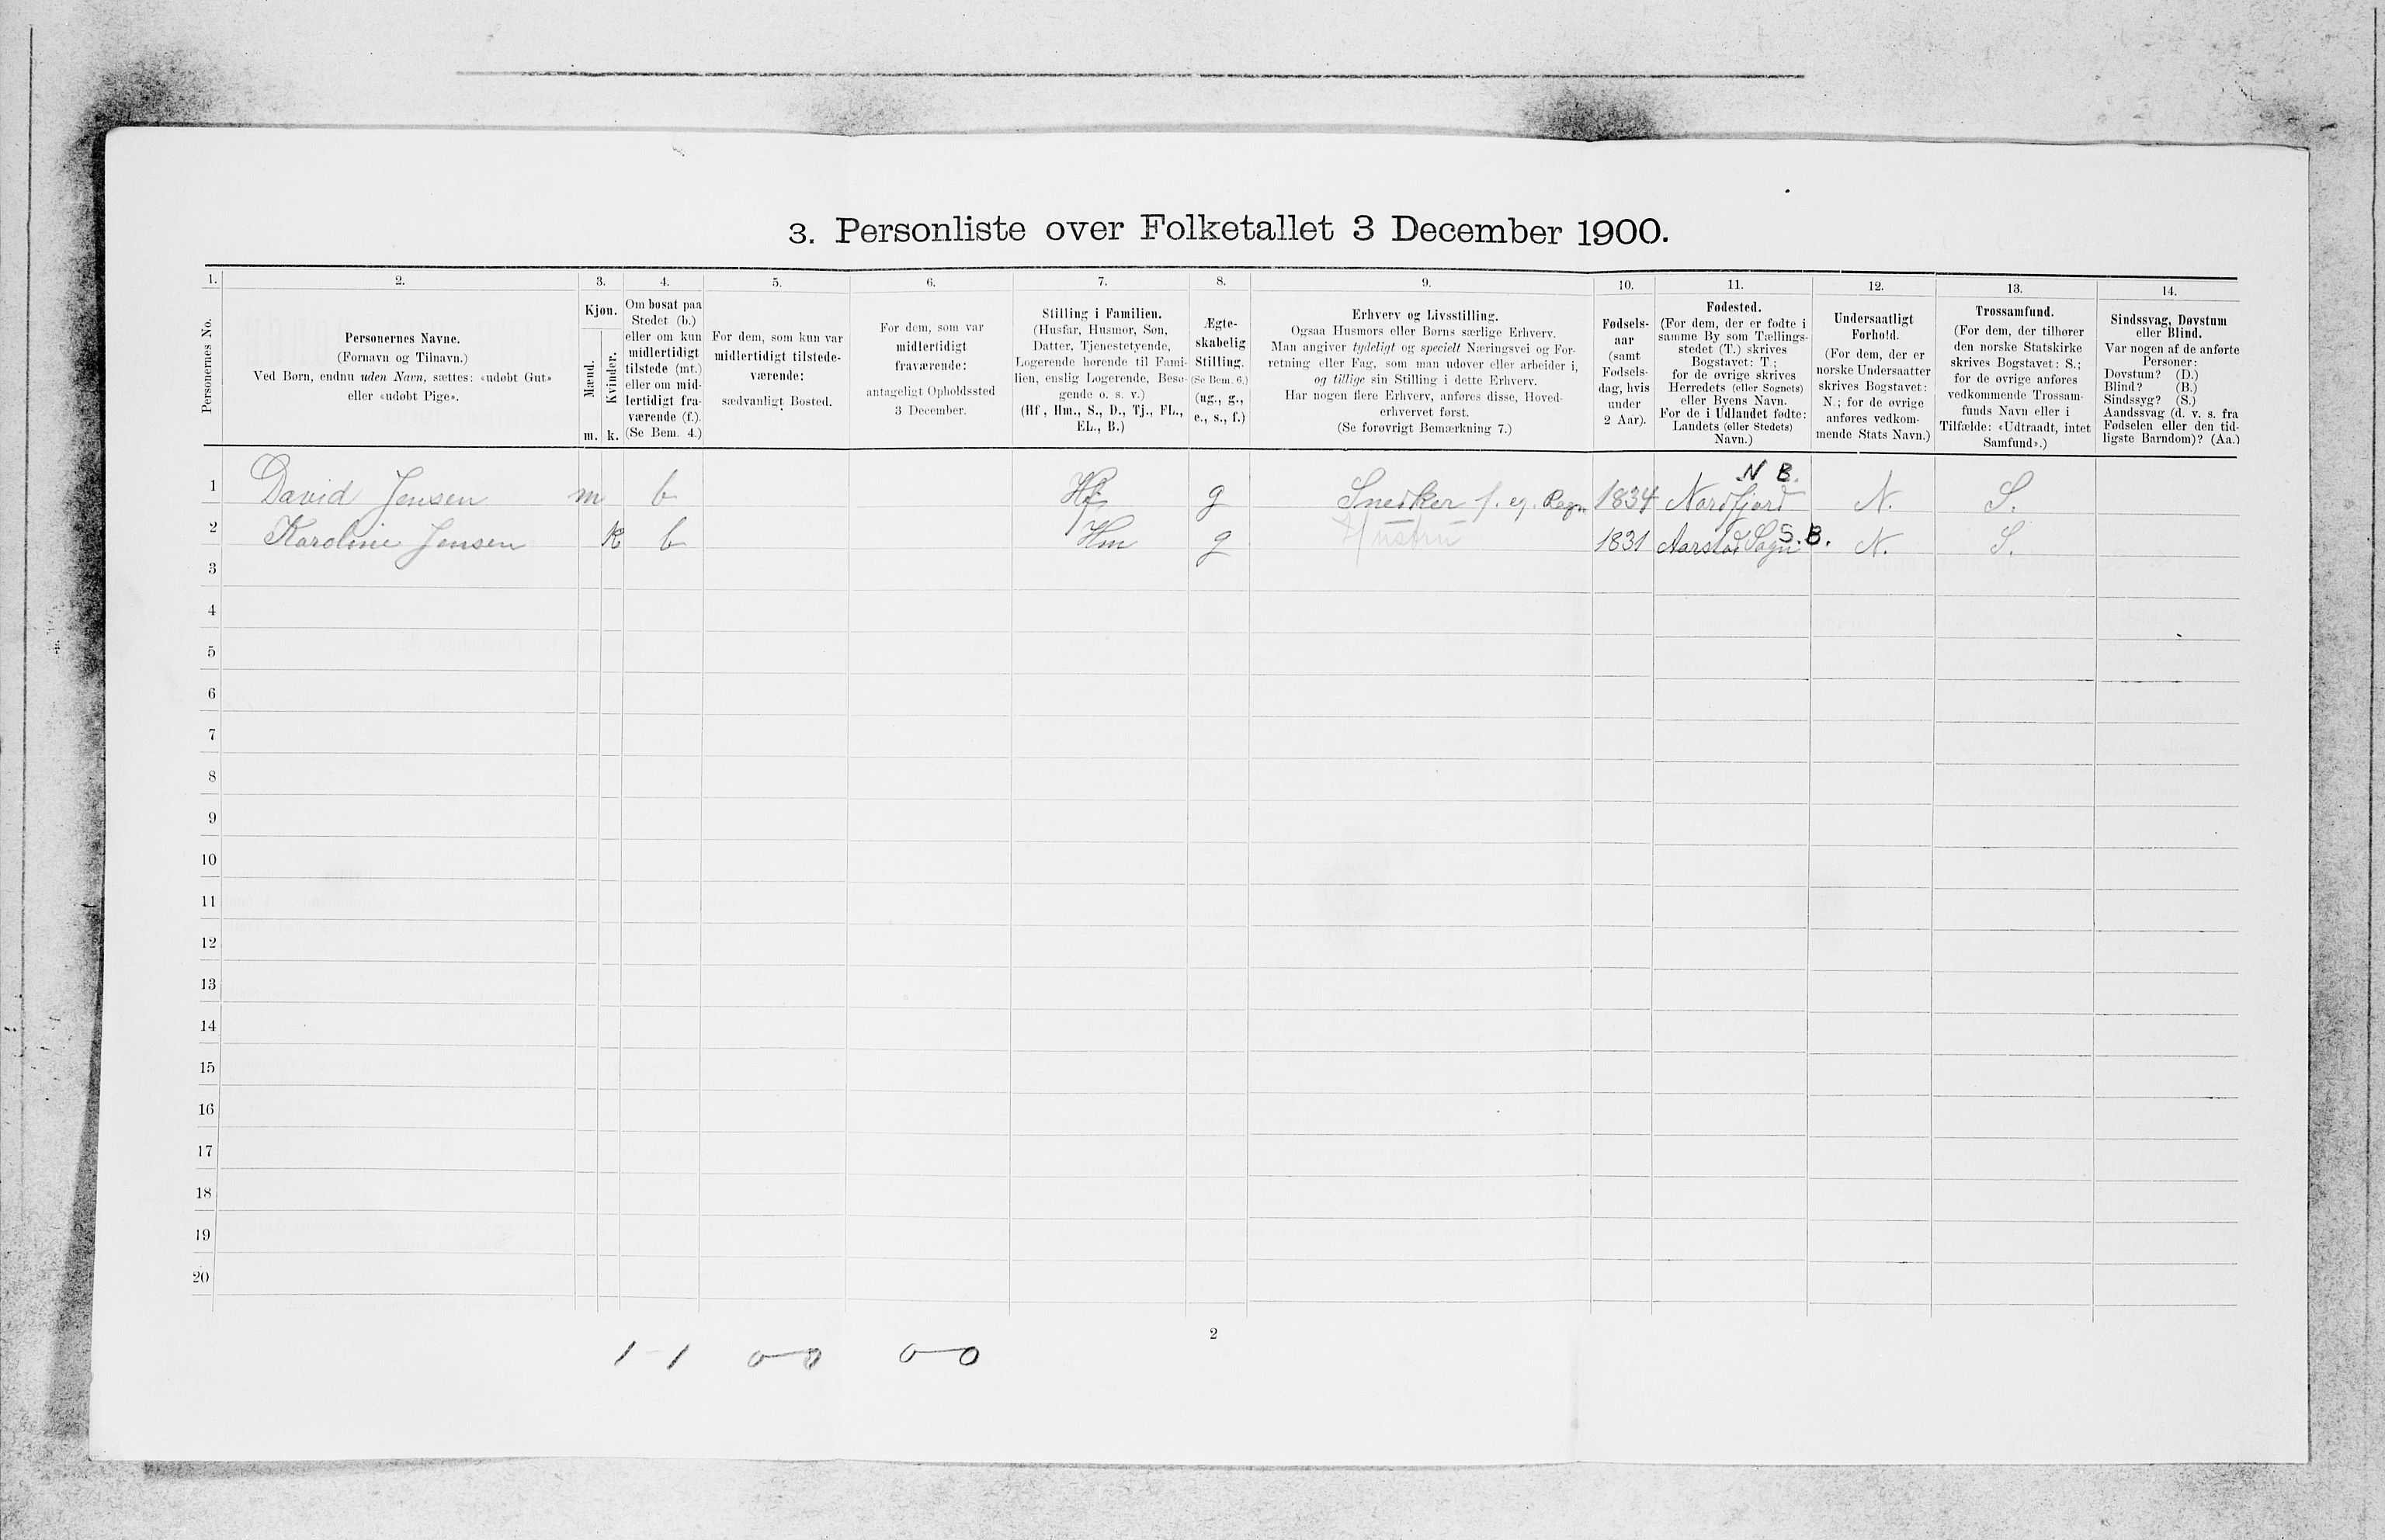 3. Personliste over Folketallet 3 December 1900.
1. 2. 3. 4. 5. 6. 7. 8. 9. 10. 11. 12. 13. 14.
Personernes No.
Personernes Navne.
(Fornavn og Tilnavn.)
Ved Børn, endnu uden Navn, sættes: «udøbt Gut»
eller «udøbt Pige».
Kjøn.
Mænd.
Kvinder.
m. k.
Om bosat paa
Stedet (b.)
eller om kun
midlertidigt
tilstede (mt.)
eller om mid-
lertidigt fra-
værende (f.).
(Se Bem. 4.)
For dem, som kun var
midlertidigt tilstede-
værende:
sædvanligt Bosted.
For dem, som var
midlertidigt
fraværende:
antageligt Opholdssted
3 December.
Stilling i Familien.
(Husfar, Husmor, Søn,
Datter, Tjenestetyende,
Logerende hørende til Fami-
lien, enslig Logerende, Besø-
gende o. s. v.)
(Hf, Hm., S., D., Tj., FL.,
EL., B.)
Ægte-
skabelig
Stilling.
(Se Bem. 6.)
(ug., g.,
e., s., f.)
Erhverv og Livsstilling.
Ogsaa Husmors eller Børns særlige Erhverv.
Man angiver tydeligt og specielt Næringsvei og For-
retning eller Fag, som man udøver eller arbeider i,
og tillige sin Stilling i dette Erhverv.
Har nogen flere Erhverv, anføres disse, Hoved-
erhvervet først.
(Se forøvrigt Bemærkning 7.)
Fødsels-
aar
(samt
Fødsels-
dag, hvis
under
2 Aar).
Fødested.
(For dem, der er fødte i
samme By som Tællings-
stedet (T.) skrives
Bogstavet: T.;
for de øvrige skrives
Herredets (eller Sognets)
eller Byens Navn.
For de i Udlandet fødte:
Landets (eller Stedets)
Navn.)
Undersaatligt
Forhold.
(For dem, der er
norske Undersaatter
skrives Bogstavet:
N.; for de øvrige
anføres vedkom-
mende Stats Navn.)
Trossamfund.
(For dem, der tilhører
den norske Statskirke
skrives Bogstavet: S.;
for de øvrige anføres
vedkommende Trossam-
funds Navn eller i
Tilfælde: «Udtraadt, intet
Samfund».)
Sindssvag, Døvstum
eller Blind.
Var nogen af de anførte
Personer:
Døvstum? (D.)
Blind? (B.)
Sindssyg? (S.)
Aandssvag (d. v. s. fra
Fødselen eller den tid-
ligste Barndom)? (Aa.)
N B.
1 David Jensen m b Hf g Snedker f. eg. Regn 1834 Nordfjord N. S.
2 Karoline Jensen K b Hm g Hustru 1831 Aarstad Sogn S. B. N. S.
3
4
5
6
7
8
9
10
11
12
13
14
15
16
17
18
19
20
2
1-1 0-0 0-0